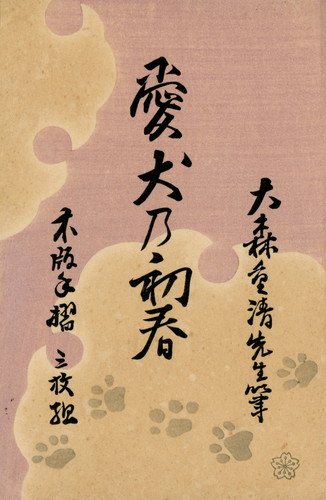 大森重清先生筆
愛犬乃初春
木版手摺 三枚組